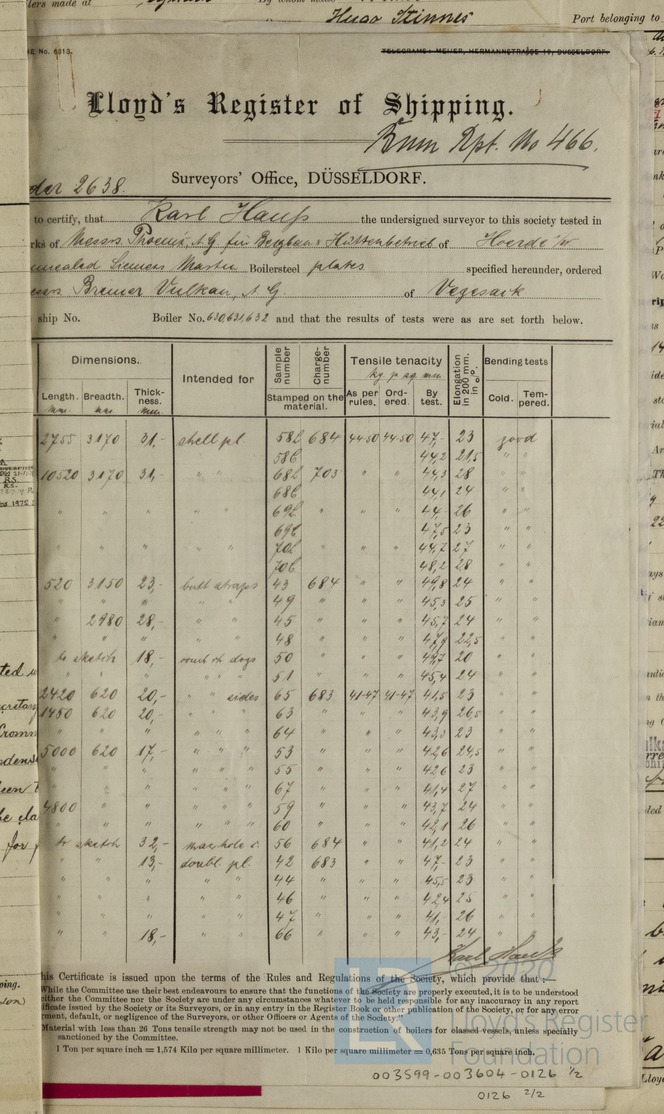 Hugo Stinnes
Port belonging to
TELEGRAMS: MEIJER, HERMANNSTRASSE 19, DÜSSELDORF.
Lloyd's Register of Shipping.
Rpt. No 466.
2638. Surveyors' Office, DÜSSELDORF.
to certify, that Karl Hauß the undersigned surveyor to this society tested in
Messrs. Phoenix, A.G. für Bergbau & Hüttenbetrieb of Hoerde
Siemens Martin Boilersteel plates specified hereunder, ordered
Bremer Vulkan, A.G. of Vegesack
ship No. Boiler No. 630,631,632 and that the results of tests were as are set forth below.
Dimensions. Intended for Sample number Charge-number Tensile tenacity Elongation in 200 mm. in %. Bending tests
kg p sq mm
Length. Breadth. Thick-ness. Stamped on the material. As per rules. Ord-ered. By test. Cold. Tem-pered.
mm mm mm
2755 3170 31,- shell pl 58t 684 44-50 44-50 47,- 23 good "
58b 44,2 21,5 " "
10520 3170 31,- " " 68t 703 " " 44,3 28 " "
68b 44,1 24 " "
" " " " " 69t " " " 44,- 26 " "
69b 47,5 23 " "
" " " " " 70t " " " 44,7 27 " "
70b 48,2 28 " "
520 3150 23,- butt straps 43 684 " " 49,8 24 " "
" " " " " 49 " " " 45,3 25 " "
" 2980 28,- " " 45 " " " 45,7 24 " "
" " " " " 48 " " " 47,9 22,5 " "
to sketch 18,- dogs 50 " " " 20 " "
" " " " " 51 " " " 45,4 24 " "
2420 620 20,- " " sides 65 683 41-47 41-47 41,5 23 " "
1480 620 20,- " " " 63 " " " 43,9 26,5 " "
" " " " " " 64 " " " 43,3 23 " "
5000 620 17,- " " " 53 " " " 42,6 24,5 " "
" " " " " " 55 " " " 42,6 23 " "
" " " " " " 67 " " " 41,4 27 " "
4800 " " " " " 59 " " " 43,7 24 " "
" " " " " " 60 " " " 42,1 26 " "
to sketch 32,- manhole 56 684 " " 41,2 24 " "
" " 13,- doubl. pl 42 683 " " 47,- 23 " "
" " " " " 44 " " " 45,5 23 " "
" " " " " 46 " " " 42,4 25 " "
" " " " " 47 " " " 41,- 26 " "
" " 18,- " " 66 " " " 43,- 24 " "
Karl Hauß
his Certificate is issued upon the terms of the Rules and Regulations of the Society, which provide that:—
While the Committee use their best endeavours to ensure that the functions of the Society are properly executed, it is to be understood
either the Committee nor the Society are under any circumstances whatever to be held responsible for any inaccuracy in any report
ificate issued by the Society or its Surveyors, or in any entry in the Register Book or other publication of the Society, or for any error
ment, default, or negligence of the Surveyors, or other Officers or Agents of the Society."
Material with less than 26 Tons tensile strength may not be used in the construction of boilers for classed vessels, unless specially
sanctioned by the Committee.
1 Ton per square inch = 1,574 Kilo per square millimeter. 1 Kilo per square millimetre = 0,635 Tons per square inch.
© 2020
Lloyd's Register
Foundation
003599-003604-0126 1/2
0126 2/2